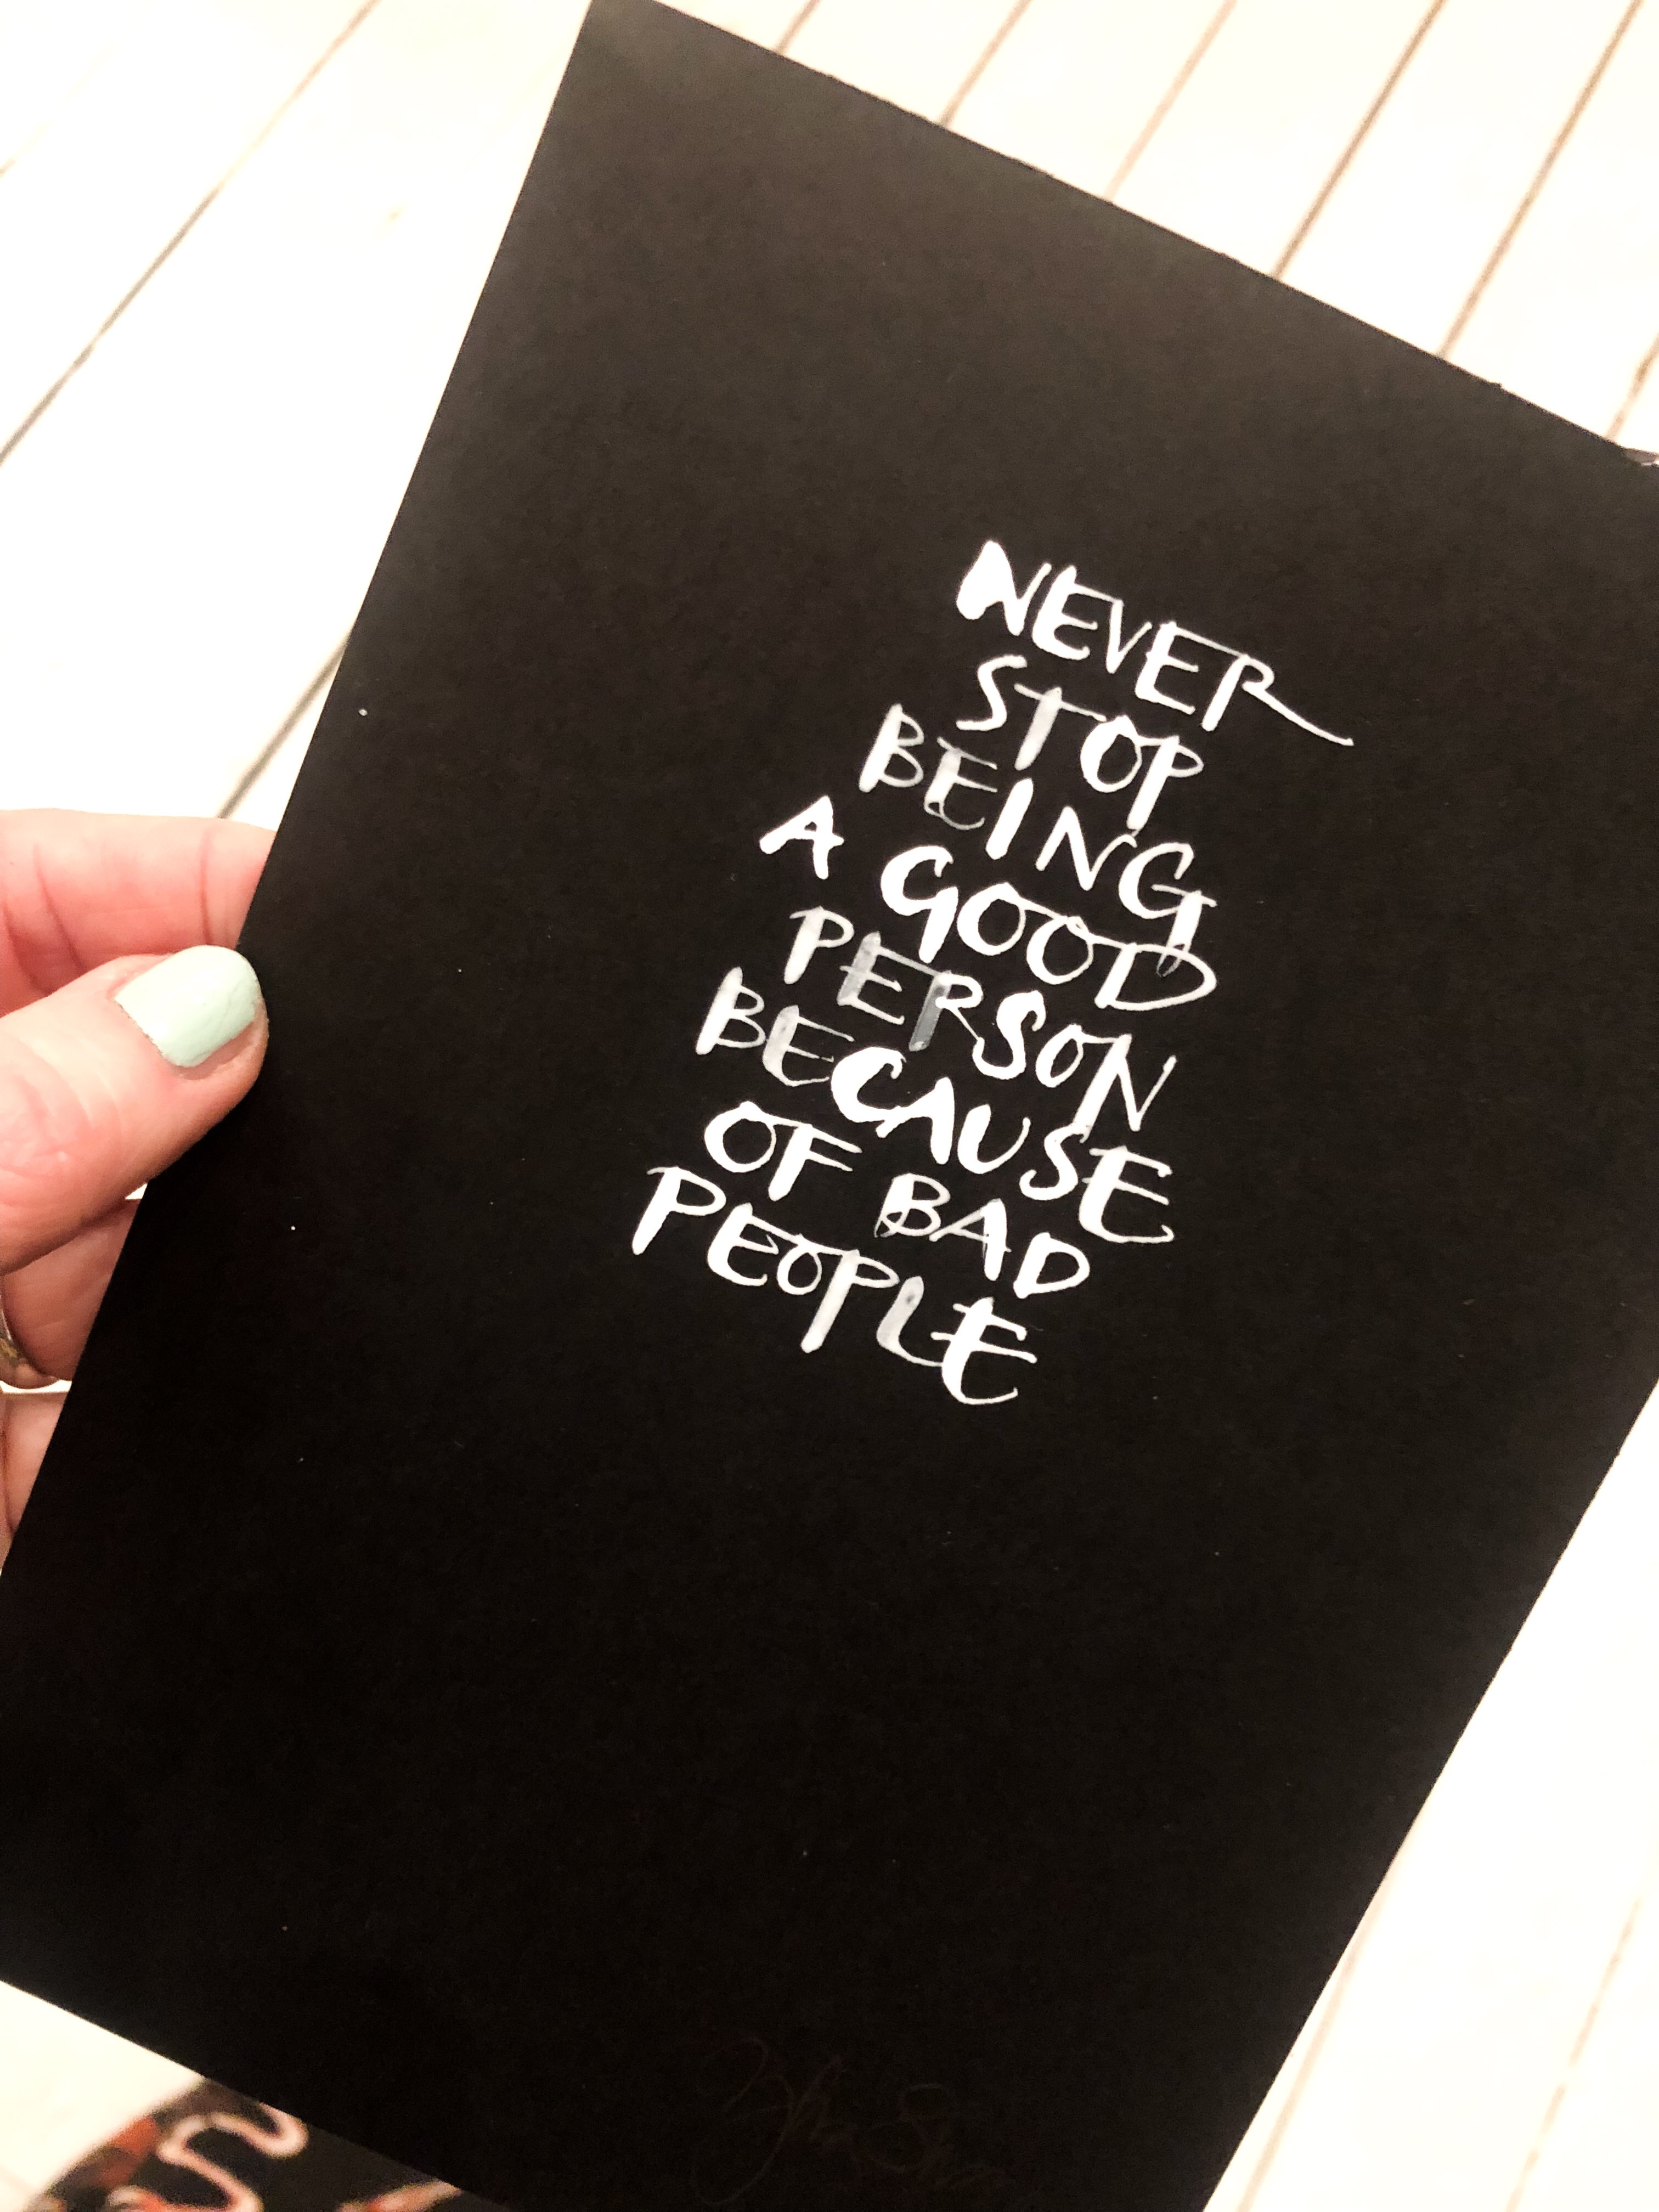 NEVER
STOP
BEING
A GOOD
PERSON
BECAUSE
OF BAD
PEOPLE